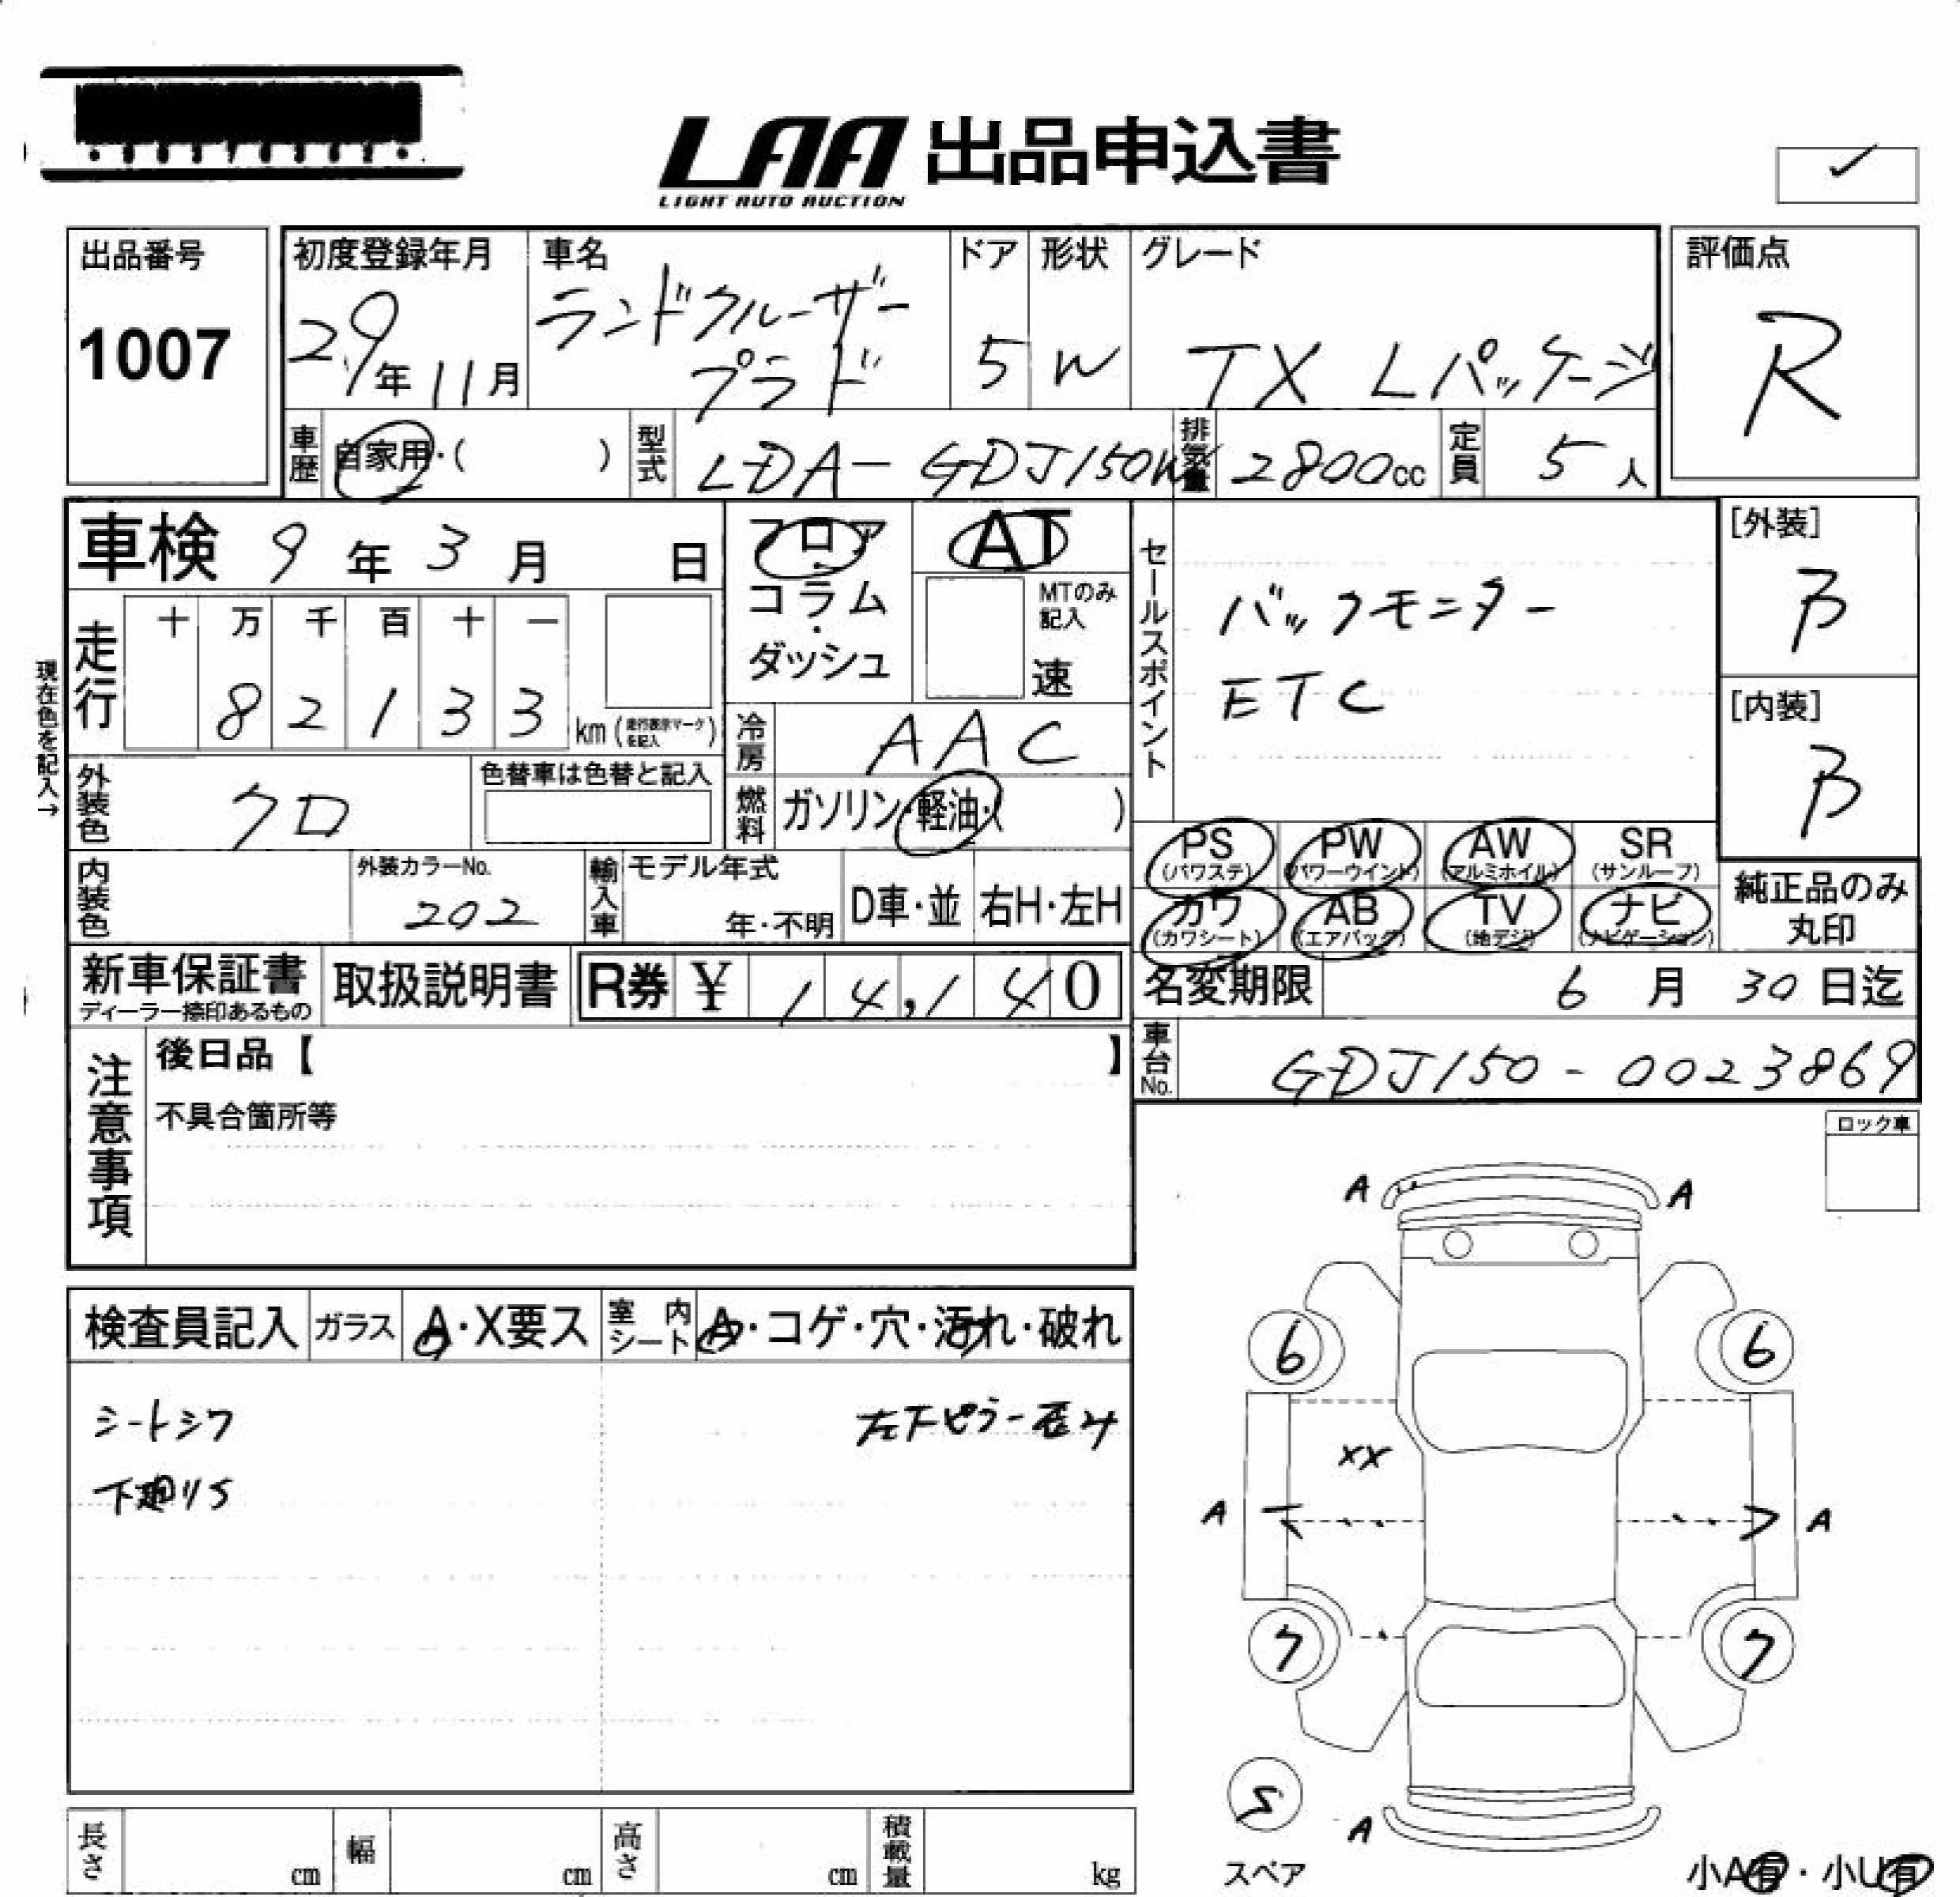 LAA 出品申込書
LIGHT AUTO AUCTION
出品番号
1007
初度登録年月
29年11月
車名
ランドクルーザー
プラド
ドア
5
形状
W
グレード
TX Lパッケージ
評価点
R
車歴 自家用・( )
型式 LDA-GDJ150W
排気量 2800cc
定員 5人
車検 9年3月 日
フロア
コラム
・
ダッシュ
AT
MTのみ
記入
速
セールスポイント
バックモニター
ETC
[外装]
B
[内装]
B
現在色を記入→
走行
十 万 千 百 十 一
8 2 1 3 3
km (走行表示マークを記入)
冷房 AAC
燃料 ガソリン・軽油・( )
外装色 クロ
色替車は色替と記入
内装色
外装カラーNo.
202
輸入車
モデル年式
年・不明
D車・並
右H・左H
PS (パワステ)
PW (パワーウインド)
AW (アルミホイル)
SR (サンルーフ)
カワ (カワシート)
AB (エアバッグ)
TV (地デジ)
ナビ (ナビゲーション)
純正品のみ
丸印
新車保証書
ディーラー捺印あるもの
取扱説明書
R券 ¥ 14,140
名変期限 6月30日迄
車台No. GDJ150-0023869
注意事項
後日品【 】
不具合箇所等
ロック車
検査員記入
ガラス A・X要ス
室内シート A・コゲ・穴・汚れ・破れ
シートシワ
左下ピラー歪み
下廻りS
A A
6 6
XX
A A
7 7
S
スペア
A
長さ cm
幅 cm
高さ cm
積載量 kg
小A有・小U有